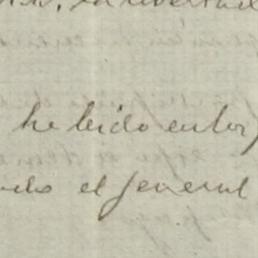 la libertad
he leido en los
el general